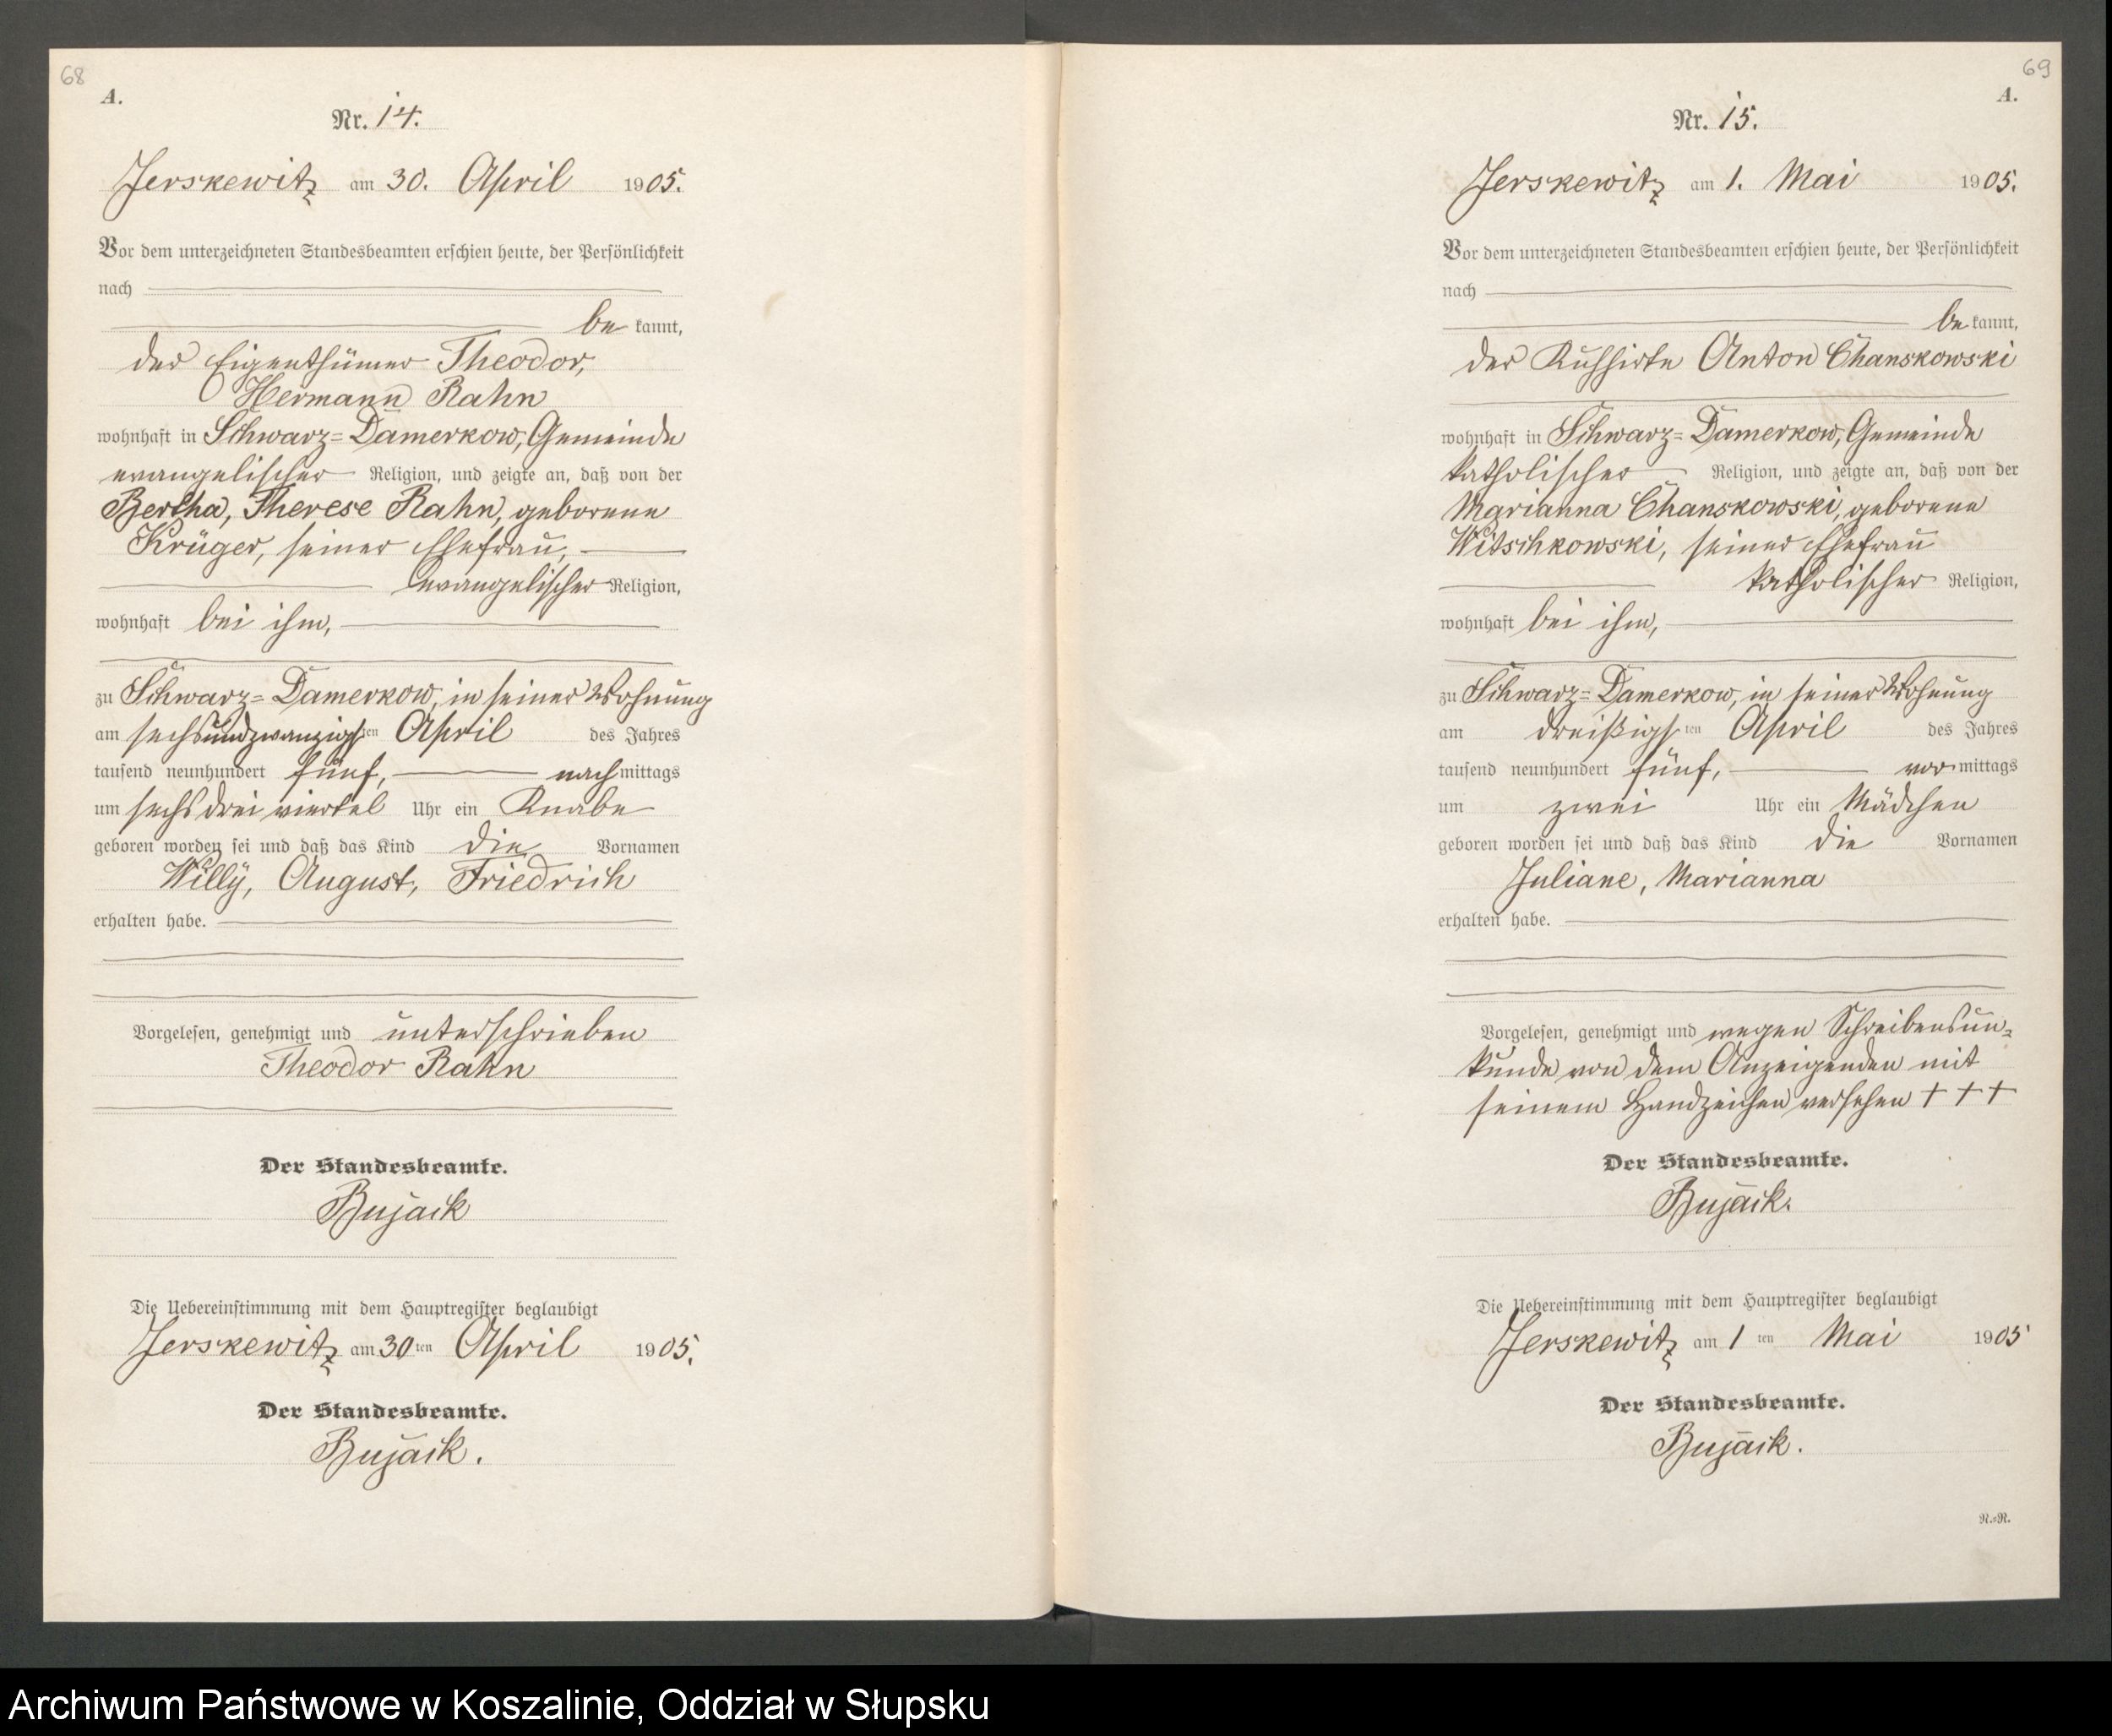 68
A.
Nr. 14.
Jerskewitz am 30. April 1905.
Vor dem unterzeichneten Standesbeamten erschien heute, der Persönlichkeit
nach
be kannt,
der Eigenthümer Theodor,
Hermann Rahn
wohnhaft in Schwarz=Damerkow, Gemeinde
evangelischer Religion, und zeigte an, daß von der
Bertha, Therese Rahn, geborene
Krüger, seiner Ehefrau,
evangelischer Religion,
wohnhaft bei ihm,
zu Schwarz=Damerkow, in seiner Wohnung
am sechsundzwanzigsten April des Jahres
tausend neunhundert fünf, nachmittags
um sechs drei viertel Uhr ein Knabe
geboren worden sei und daß das Kind die Vornamen
Willy, August, Friedrich
erhalten habe.
Vorgelesen, genehmigt und unterschrieben
Theodor Rahn
Der Standesbeamte.
Bujack
Die Uebereinstimmung mit dem Hauptregister beglaubigt
Jerskewitz am 30ten April 1905.
Der Standesbeamte.
Bujack.
69
A.
Nr. 15.
Jerskewitz am 1. Mai 1905.
Vor dem unterzeichneten Standesbeamten erschien heute, der Persönlichkeit
nach
be kannt,
der Kuhhirte Anton Chanskowski
wohnhaft in Schwarz=Damerkow, Gemeinde
katholischer Religion, und zeigte an, daß von der
Marianna Chanskowski, geborene
Witschkowski, seiner Ehefrau
katholischer Religion,
wohnhaft bei ihm,
zu Schwarz=Damerkow, in seiner Wohnung
am dreißigsten April des Jahres
tausend neunhundert fünf, vormittags
um zwei Uhr ein Mädchen
geboren worden sei und daß das Kind die Vornamen
Juliane, Marianna
erhalten habe.
Vorgelesen, genehmigt und wegen Schreibensun=
kunde von dem Anzeigenden mit
seinem Handzeichen versehen + + +
Der Standesbeamte.
Bujack.
Die Uebereinstimmung mit dem Hauptregister beglaubigt
Jerskewitz am 1 ten Mai 1905
Der Standesbeamte.
Bujack.
R.=R.
Archiwum Państwowe w Koszalinie, Oddział w Słupsku